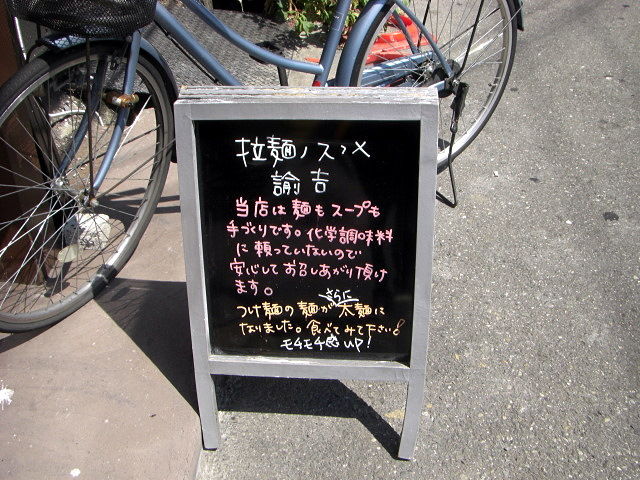 拉麺ノススメ
諭吉
当店は麺もスープも
手づくりです。化学調味料
に頼っていないので
安心してお召しあがり頂け
ます。
さらに
つけ麺の麺が太麺に
なりました。食べてみて下さい!
モチモチ感UP!